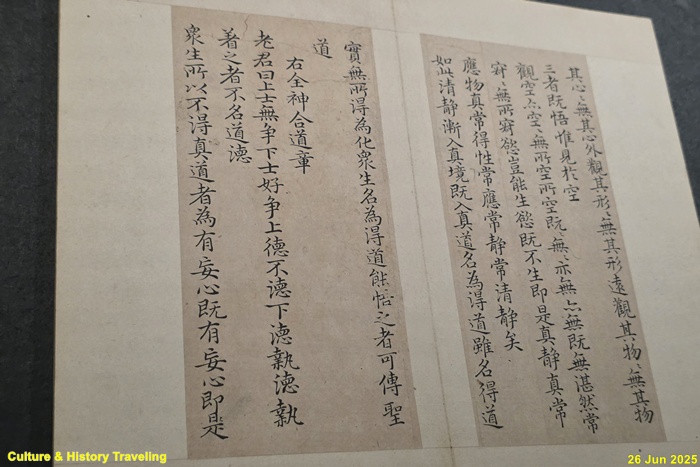 其心〻無其心外觀其形〻無其形遠觀其物〻無其物
三者既悟惟見於空
觀空亦空〻無所空所空既〻無〻亦無〻無既無湛然常
寂〻無所寂慾豈能生慾既不生即是真静真常
應物真常得性常應常静常清静矣
如此清静漸入真境既入真道名為得道雖名得道
實無所得為化衆生名為得道能悟之者可傳聖
道
右全神合道章
老君曰上士無争下士好争上德不德下德執德執
著之者不名道德
衆生所以不得真道者為有妄心既有妄心即是
Culture & History Traveling
26 Jun 2025